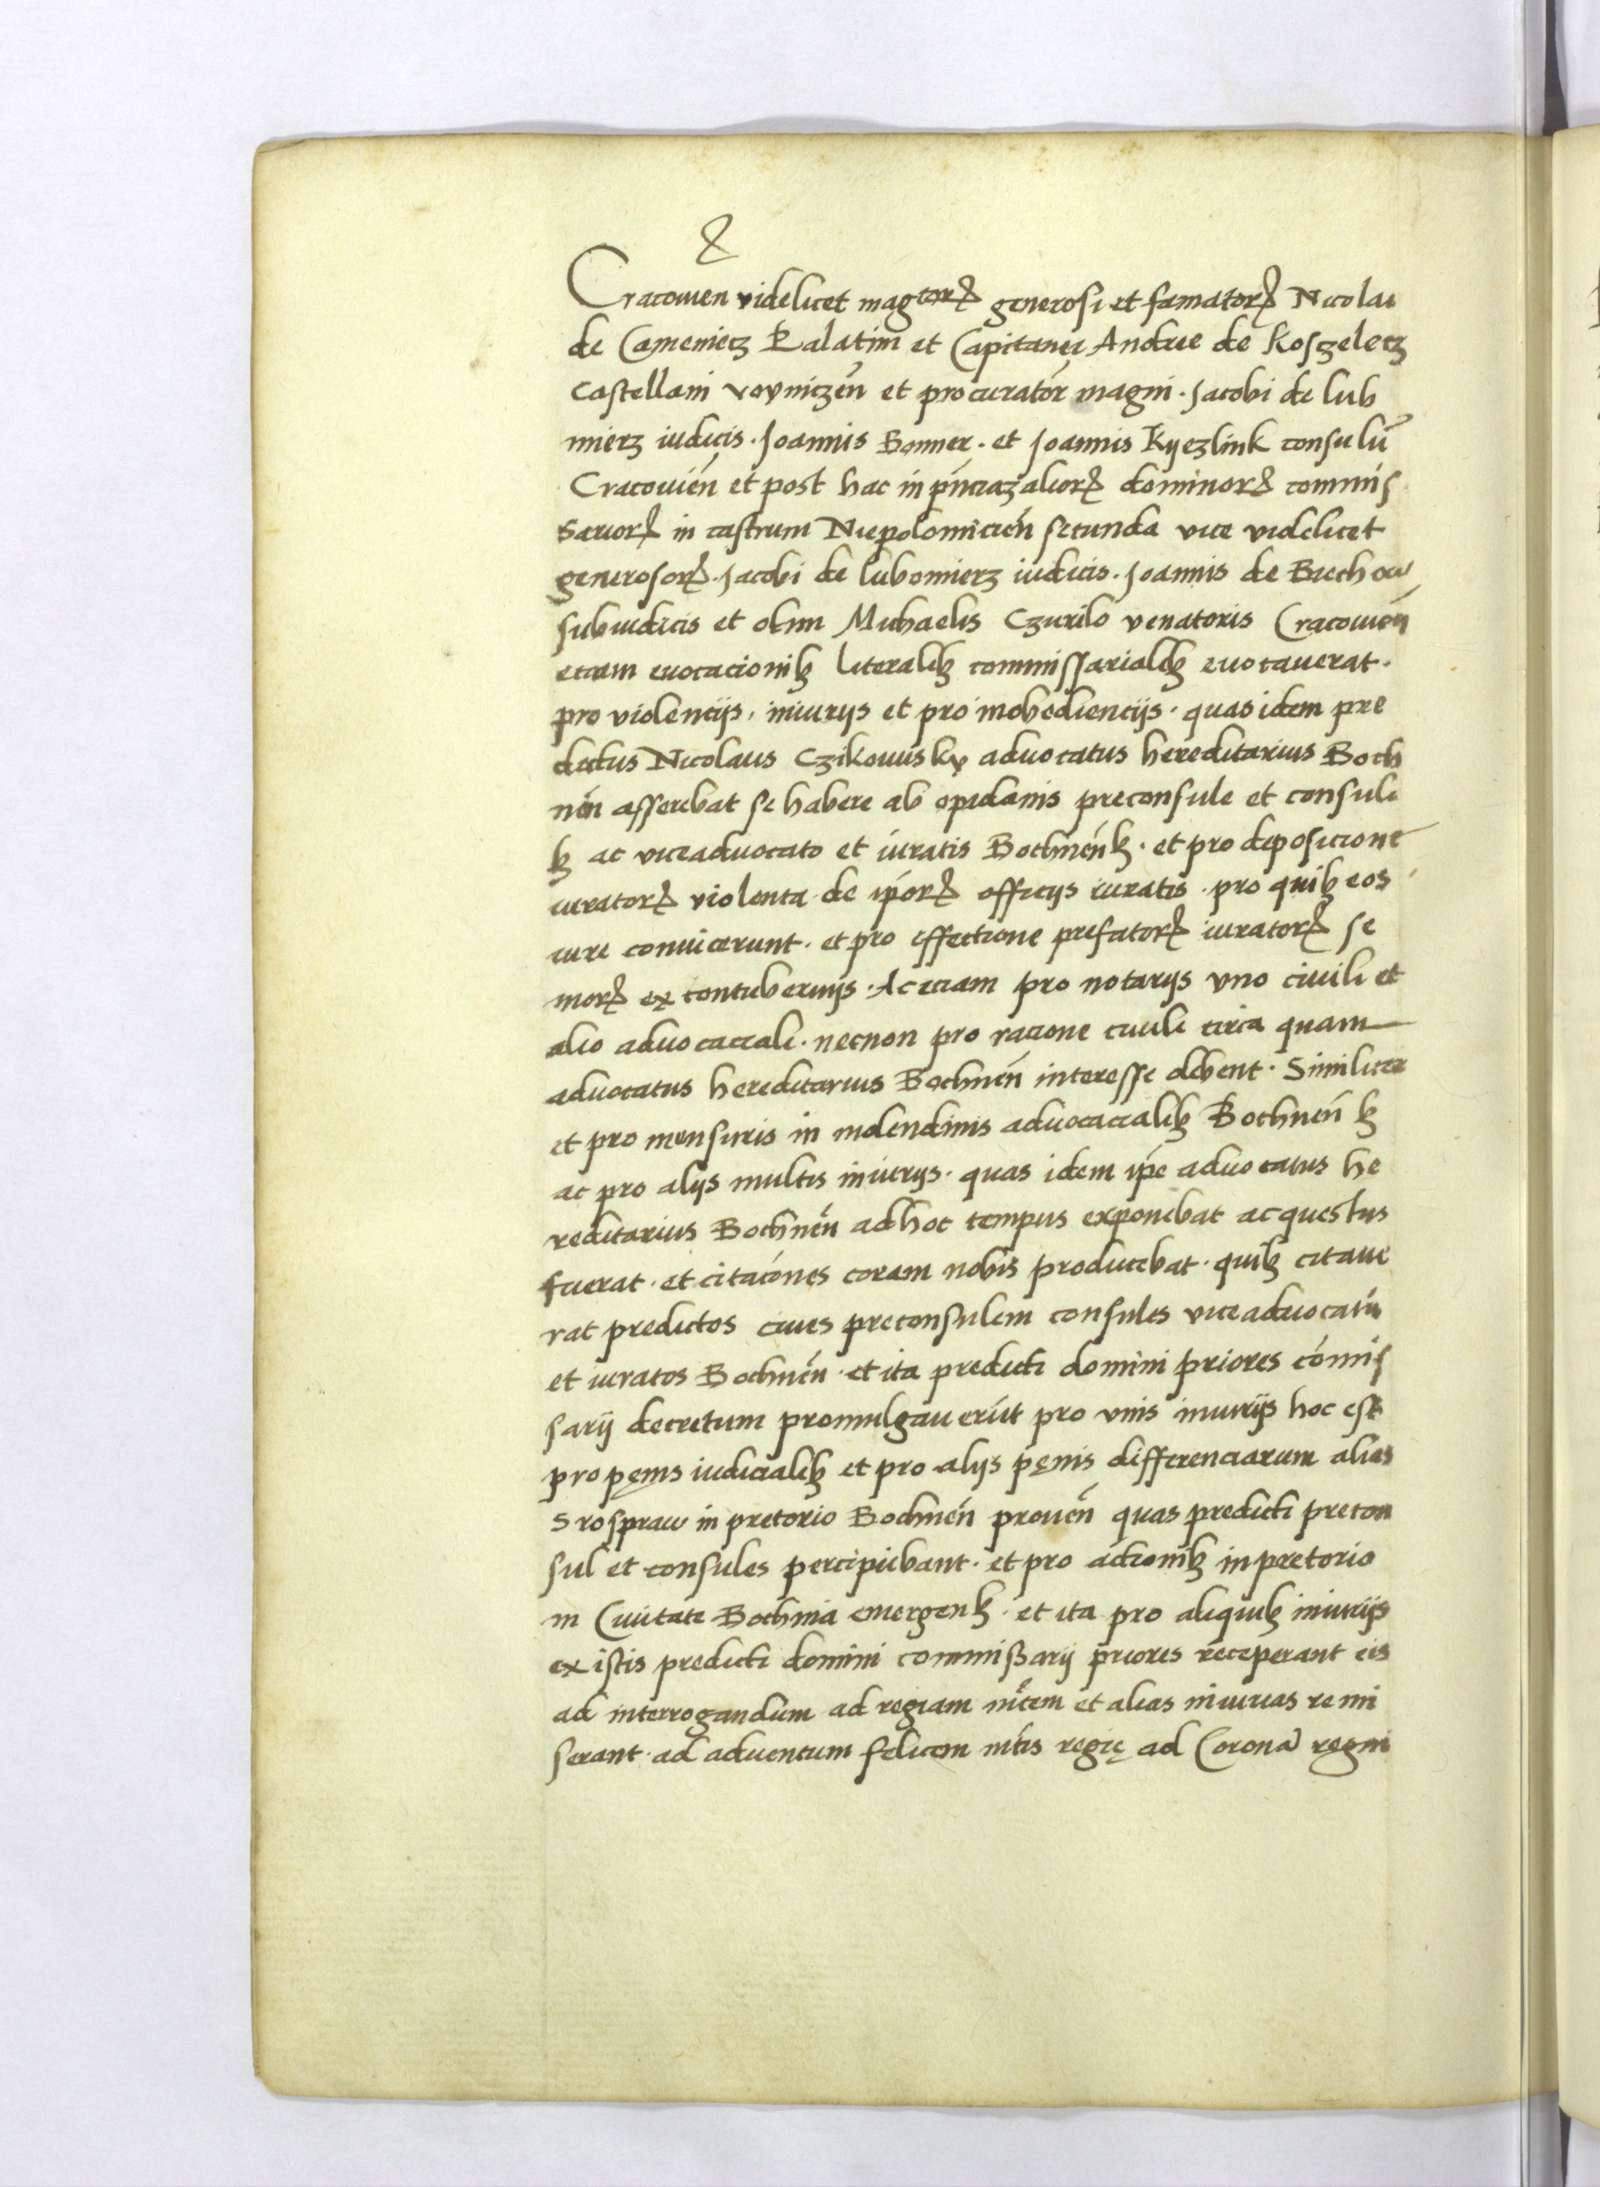 &
Cracouien videlicet magcorꝝ generosi et famatorꝝ Nicolai
de Camenietz Palatini et Capitanei Andree de Kosczeletz
castellani voyniczēn et procurator magni. Jacobi de lub
mierz iudicis. Joannis Bonner. et Joannis Kyezlink consulū
Cracouiēn et post hac in pn̄ciaꝫ aliorꝝ dominorꝝ commis
sariorꝝ in castrum Niepolomiciēn secunda vice videlicet
generosorꝝ. Jacobi de lubomierz iudicis. Joannis de Biechow
subiudicis et olim Michaelis Czurilo venatoris Cracouiēn
etiam euocacionibꝫ literalibꝫ commissarialibꝫ euocauerat.
pro violencijs, iniurijs et pro inobediencijs. quas idem pre
dictus Nicolaus Czikowsky aduocatus hereditarius Boch
nēn asserebat se habere ab opidanis preconsule et consuli
bꝫ ac viceaduocato et iuratis Bochnēnbꝫ. et pro deposicione
iuratorꝝ violenta de ipōrꝝ officijs iuratis. pro quibꝫ eos
iure conuicerunt. et pro effectione prefatorꝝ iuratorꝝ se
niorꝝ ex contubernijs. Ac eciam pro notarijs vno ciuili et
alio aduocaciali. necnon pro racione ciuili circa quam
aduocatus hereditarius Bochnēn interesse debent. Similiter
et pro mensuris in molendinis aduocacialibꝫ Bochnēnbꝫ
ac pro alijs multis iniurijs. quas idem ip̄e aduocatus he
reditarius Bochnēn ad hoc tempus exponebat ac questus
fuerat. et citaciōnes coram nobis producebat. quibꝫ citaue
rat predictos ciues preconsulem consules viceaduocatū
et iuratos Bochnēn. et ita predicti domini priores cōmis
sarij decretum promulgauerūt pro vnis iniurijs hoc est
pro pęnis iudicialibꝫ et pro alijs pęnis differenciarum alias
s rospraw in pretorio Bochnēn prouēn quas predicti precon
sul et consules percipiebant. et pro actionibꝫ in pretorio
in Ciuitate Bochnia emergenbꝫ. et ita pro aliquibꝫ iniurijs
ex istis predicti domini commissarij priores receperant eis
ad interrogandum ad regiam mt̄em et alias iniurias remi
serant. ad aduentum felicem mt̄is regię ad Coronā regni